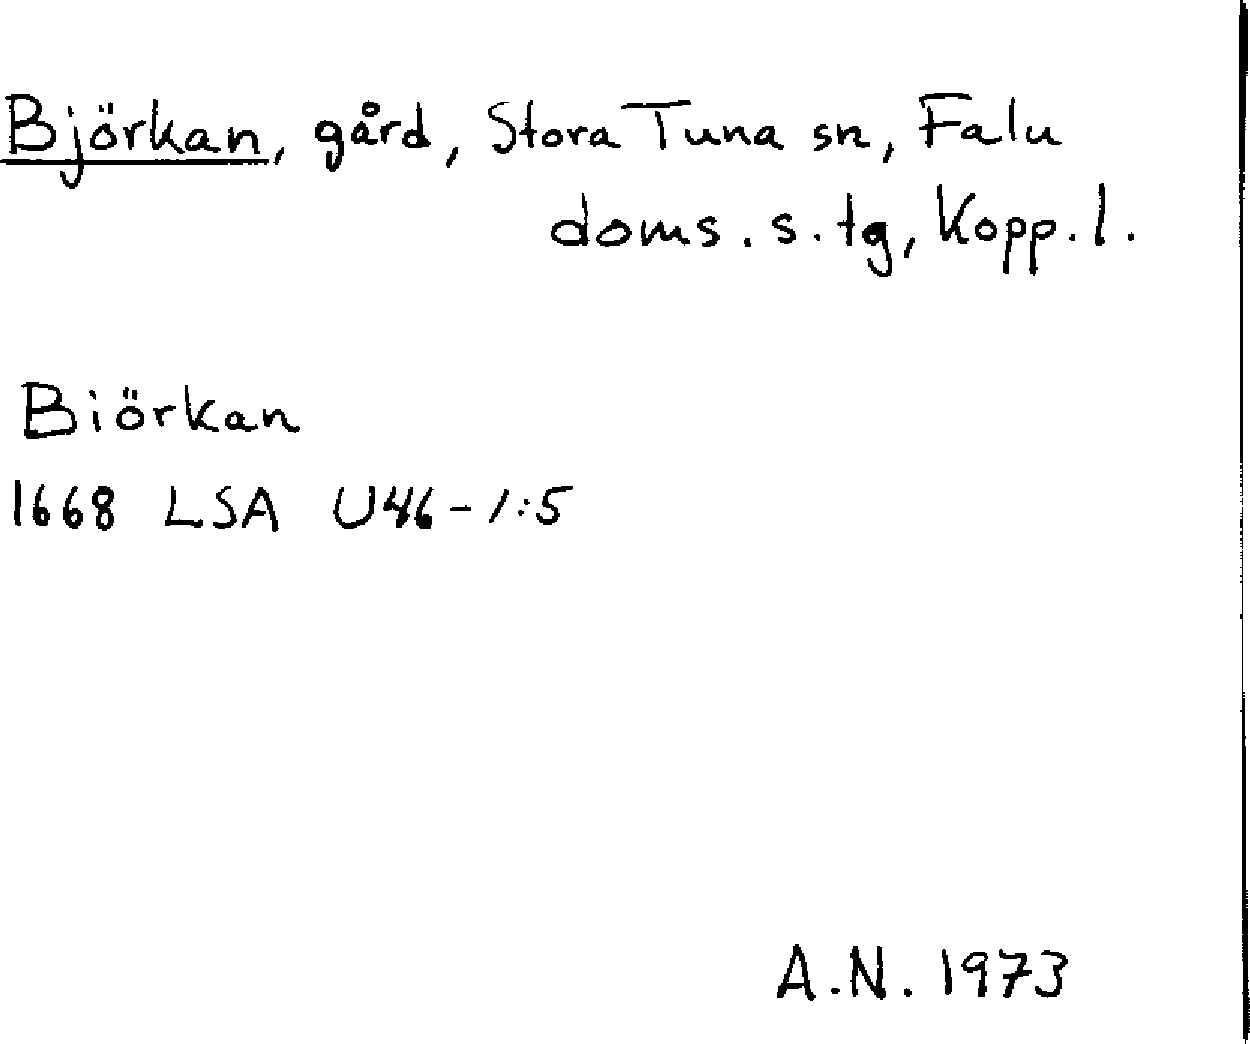 Björkan, gård, Stora Tuna sn, Falu
doms. s. tg, Kopp. l.
Biörkan
1668 LSA U46-1:5
A.N. 1973